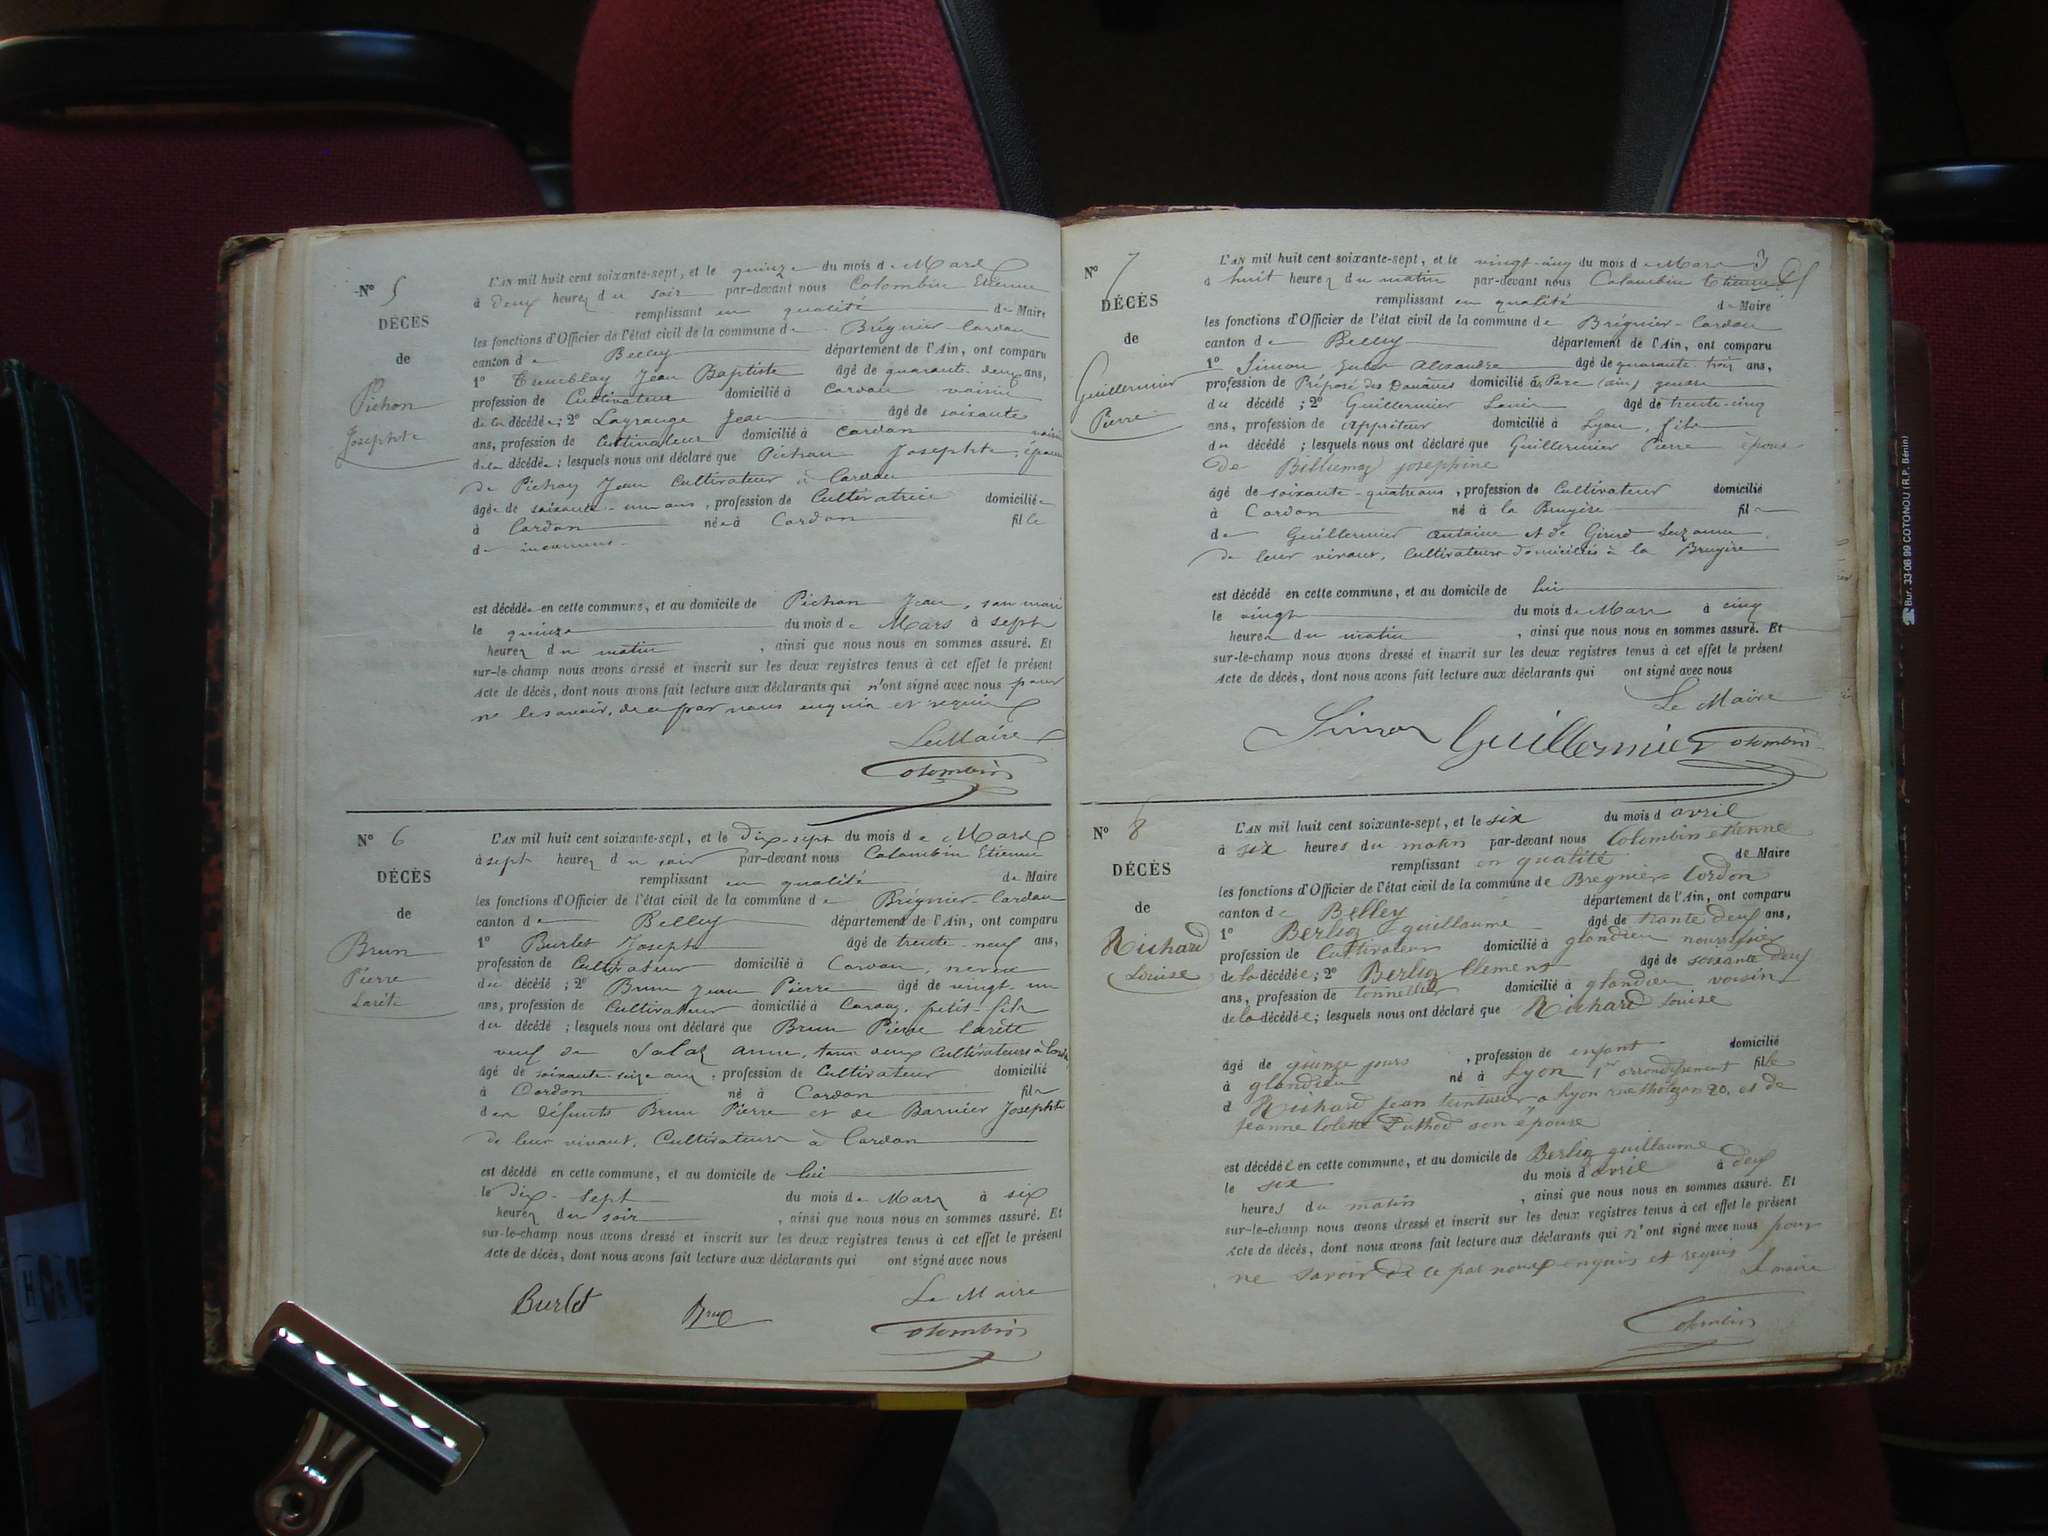 N° 5
DÉCÈS
de
Pichon
Josephte
L'AN mil huit cent soixante-sept, et le quinze du mois de Mars
à deux heures du soir par-devant nous Colombin Etienne
remplissant en qualité de Maire
les fonctions d'Officier de l'état civil de la commune de Brégnier-Cordon
canton de Belley département de l'Ain, ont comparu
1° Tremblay Jean Baptiste âgé de quarante-deux ans,
profession de Cultivateur domicilié à Cordon voisin
de la décédée; 2° Lagrange Jean âgé de soixante
ans, profession de Cultivateur domicilié à Cordon voisin
de la décédée; lesquels nous ont déclaré que Pichon Josephte, épouse
de Pichon Jean Cultivateur à Cordon
âgée de soixante-un ans, profession de Cultivatrice domiciliée
à Cordon née à Cordon fille
de inconnus
est décédée en cette commune, et au domicile de Pichon Jean, son mari
le quinze du mois de Mars à sept
heures du matin, ainsi que nous nous en sommes assuré. Et
sur-le-champ nous avons dressé et inscrit sur les deux registres tenus à cet effet le présent
Acte de décès, dont nous avons fait lecture aux déclarants qui n'ont signé avec nous pour
ne le savoir, de ce par nous enquis et requis
Le Maire
Colombin
N° 6
DÉCÈS
de
Brun
Pierre
Larète
L'AN mil huit cent soixante-sept, et le dix-sept du mois de Mars
à sept heures du soir par-devant nous Colombin Etienne
remplissant en qualité de Maire
les fonctions d'Officier de l'état civil de la commune de Brégnier-Cordon
canton de Belley département de l'Ain, ont comparu
1° Burlet Joseph âgé de trente-neuf ans,
profession de Cultivateur domicilié à Cordon, neveu
du décédé; 2° Brun Jean Pierre âgé de vingt-un
ans, profession de Cultivateur domicilié à Cordon, petit-fils
du décédé; lesquels nous ont déclaré que Brun Pierre Larète
veuf de anne, tous deux Cultivateurs à Cordon
âgé de soixante-seize ans, profession de Cultivateur domicilié
à Cordon né à Cordon fils
des défunts Brun Pierre et de Barnier Josephte
de leur vivant, Cultivateurs à Cordon
est décédé en cette commune, et au domicile de lui
le dix-sept du mois de Mars à six
heures du soir, ainsi que nous nous en sommes assuré. Et
sur-le-champ nous avons dressé et inscrit sur les deux registres tenus à cet effet le présent
Acte de décès, dont nous avons fait lecture aux déclarants qui ont signé avec nous
Le Maire
Burlet Brun Colombin
N° 7
DÉCÈS
de
Guillermier
Pierre
3
L'AN mil huit cent soixante-sept, et le vingt-cinq du mois de Mars
à huit heures du matin par-devant nous Colombin Etienne
remplissant en qualité de Maire
les fonctions d'Officier de l'état civil de la commune de Brégnier-Cordon
canton de Belley département de l'Ain, ont comparu
1° Simon Jules Alexandre âgé de quarante trois ans,
profession de Préposé des Douanes domicilié à (ain) gendre
du décédé; 2° Guillermier Louis âgé de trente-cinq
ans, profession de Apprêteur domicilié à Lyon, fils
du décédé; lesquels nous ont déclaré que Guillermier Pierre époux
de Billiemaz josephine
âgé de soixante-quatre ans, profession de Cultivateur domicilié
à Cordon né à la Bruyère fils
de Guillermier antoine et de Girerd Suzanne
de leur vivant, Cultivateurs domiciliés à la Bruyère
est décédé en cette commune, et au domicile de lui
le vingt du mois de Mars à cinq
heures du matin, ainsi que nous nous en sommes assuré. Et
sur-le-champ nous avons dressé et inscrit sur les deux registres tenus à cet effet le présent
Acte de décès, dont nous avons fait lecture aux déclarants qui ont signé avec nous
Le Maire
Simon Guillermier Colombin
N° 8
DÉCÈS
de
Richard
Louise
L'AN mil huit cent soixante-sept, et le six du mois d'avril
à six heures du matin par-devant nous Colombin etienne
remplissant en qualité de Maire
les fonctions d'Officier de l'état civil de la commune de Bregnier-Cordon
canton de Belley département de l'Ain, ont comparu
1° Berlioz guillaume âgé de trante deux ans,
profession de Cultivateur domicilié à glandieu nourrisier
de la décédée; 2° Berlioz Clement âgé de soixante deux
ans, profession de tonnellier domicilié à glandieu voisin
de la décédée; lesquels nous ont déclaré que Richard Louise
âgé de quinze jours, profession de enfant domicilié
à glandieu né à Lyon 1er arrondissement fille
d Richard Jean teinturier a lyon rue 20, et de
jeanne Colette Duthod son épouse
est décédée en cette commune, et au domicile de Berlioz guillaume
le six du mois d'avril à deux
heures du matin, ainsi que nous nous en sommes assuré. Et
sur-le-champ nous avons dressé et inscrit sur les deux registres tenus à cet effet le présent
Acte de décès, dont nous avons fait lecture aux déclarants qui n'ont signé avec nous pour
ne savoir de ce par nous enquis et requis
le maire
Colombin
Bur. 33-08 99 COTONOU (R.P. Bénin)